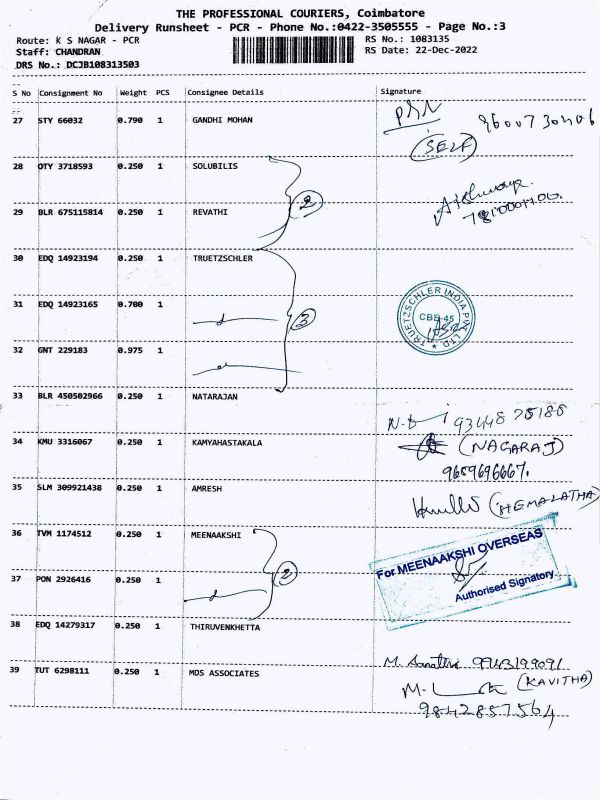 THE PROFESSIONAL COURIERS, Coimbatore
Delivery Runsheet - PCR - Phone No.:0422-3505555 - Page No.:3
Route: K S NAGAR - PCR RS No.: 1083135
Staff: CHANDRAN RS Date: 22-Dec-2022
DRS No.: DCJB108313503
S No Consignment No Weight PCS Consignee Details Signature
27 STY 66032 0.790 1 GANDHI MOHAN
(SELF)
28 OTY 3718593 0.250 1 SOLUBILIS
2
29 BLR 675115814 0.250 1 REVATHI
30 EDQ 14923194 0.250 1 TRUETZSCHLER
31 EDQ 14923165 0.700 1
3
TRUETZSCHLER INDIA PVT. LTD.
CBE-45
32 GNT 229183 0.975 1
33 BLR 450502966 0.250 1 NATARAJAN
34 KMU 3316067 0.250 1 KAMYAHASTAKALA (NAGARAJ)
9659696667.
35 SLM 309921438 0.250 1 AMRESH (HEMALATHA)
36 TVM 1174512 0.250 1 MEENAAKSHI
For MEENAAKSHI OVERSEAS
Authorised Signatory.
37 PON 2926416 0.250 1
2
38 EDQ 14279317 0.250 1 THIRUVENKHETTA
39 TUT 6298111 0.250 1 MDS ASSOCIATES
(KAVITHA)
9842857564